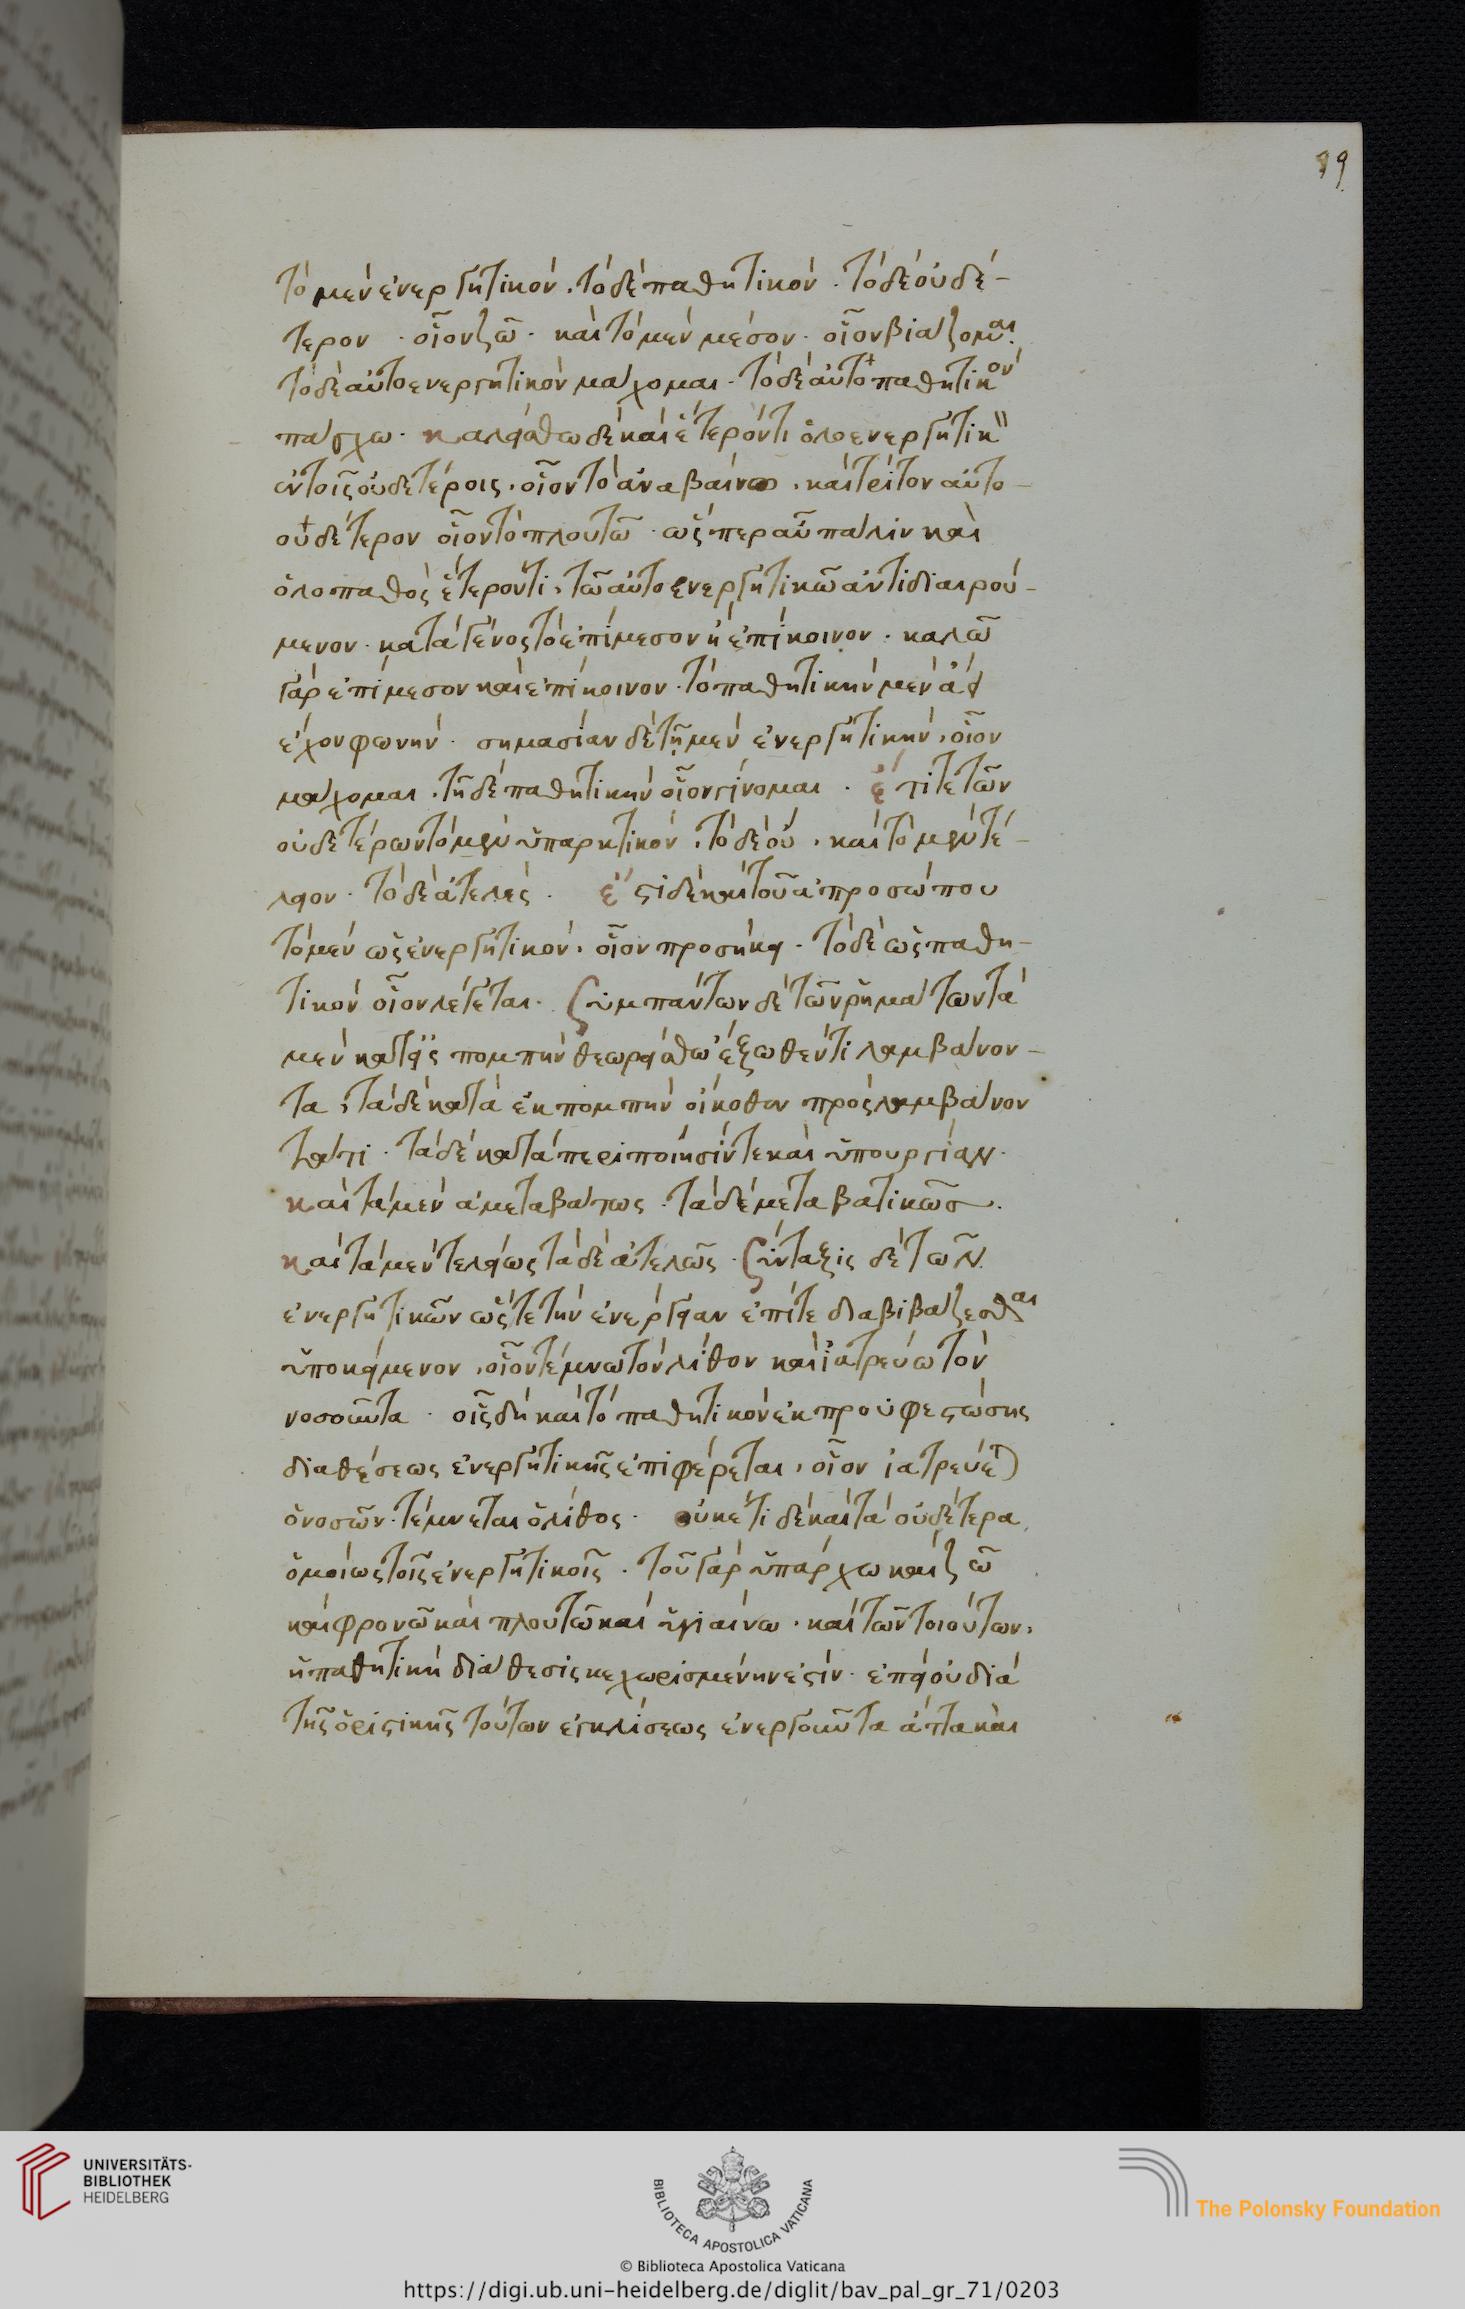 99
τὸ μὲν ἐνεργητικόν. τὸ δὲ παθητικόν. τὸ δὲ οὐδέ-
τερον. οἷον ζῶ. καὶ τὸ μὲν μέσον. οἷον βιάζομαι.
τὸ δὲ αὐτοενεργητικὸν μάχομαι. τὸ δὲ αὐτοπαθητικὸν
πάσχω. καλείσθω δὲ καὶ ἕτερόν τι ὁλοενεργητικὸν
ἐν τοῖς οὐδετέροις. οἷον τὸ ἀναβαίνω. καὶ τρίτον αὐτο-
ουδέτερον οἷον τὸ πλουτῶ. ὥσπερ αὖ πάλιν καὶ
ὁλοπαθὲς ἕτερόν τι, τῶ αὐτοενεργητικῶ ἀντιδιαιρού-
μενον. κατὰ γένος τὸ ἐπίμεσον ἢ ἐπίκοινον. καλῶ
γὰρ ἐπίμεσον καὶ ἐπίκοινον. τὸ παθητικὴν μὲν ἀεὶ
ἔχον φωνήν. σημασίαν δὲ τῇ μὲν ἐνεργητικήν, οἷον
μάχομαι. τῇ δὲ παθητικὴν οἷον γίνομαι. ἔτι τε τῶν
οὐδετέρων τὸ μὲν ὑπαρκτικόν. τὸ δὲ οὔ. καὶ τὸ μὲν τέ-
λειον. τὸ δὲ ἀτελές. ἔστι δὲ καὶ τοῦ ἀπροσώπου
τὸ μὲν ὡς ἐνεργητικόν. οἷον προσήκει. τὸ δὲ ὡς παθη-
τικὸν οἷον λέγεται. Συμπάντων δὲ τῶν ῥημάτων τὰ
μὲν κατ' εἰσπομπὴν θεωρείσθω ἔξωθέν τι λαμβάνον-
τα, τὰ δὲ κατὰ ἐκπομπὴν οἴκοθεν προσλαμβάνον
τά τι. τὰ δὲ κατὰ περιποίησίν τε καὶ ὑπουργίαν.
καὶ τὰ μὲν ἀμεταβάτως. τὰ δὲ μεταβατικῶς.
καὶ τὰ μὲν τελείως τὰ δὲ ἀτελῶς. Σύνταξις δὲ τῶν
ἐνεργητικῶν ὥστε τὴν ἐνέργειαν ἐπί τε διαβιβάζεσθαι
ὑποκείμενον, οἷον τέμνω τὸν λίθον καὶ ἰατρεύω τὸν
νοσοῦντα. οἷς δὴ καὶ τὸ παθητικὸν ἐκ προϋφεστώσης
διαθέσεως ἐνεργητικῆς ἐπιφέρεται, οἷον ἰατρεύεται
ὁ νοσῶν. τέμνεται ὁ λίθος. οὐκέτι δὲ καὶ τὰ οὐδέτερα
ὁμοίως τοῖς ἐνεργητικοῖς. τοῦ γὰρ ὑπάρχω καὶ ζῶ
καὶ φρονῶ καὶ πλουτῶ καὶ ὑγιαίνω. καὶ τῶν τοιούτων,
ἡ παθητικὴ διάθεσις κεχωρισμένην ἐστίν. ἐπεὶ οὐ διὰ
τῆς ὁριστικῆς τούτων ἐγκλίσεως ἐνεργοῦντα ἄττα καὶ
UNIVERSITÄTS-
BIBLIOTHEK
HEIDELBERG
BIBLIOTECA APOSTOLICA VATICANA
The Polonsky Foundation
© Biblioteca Apostolica Vaticana
https://digi.ub.uni-heidelberg.de/diglit/bav_pal_gr_71/0203